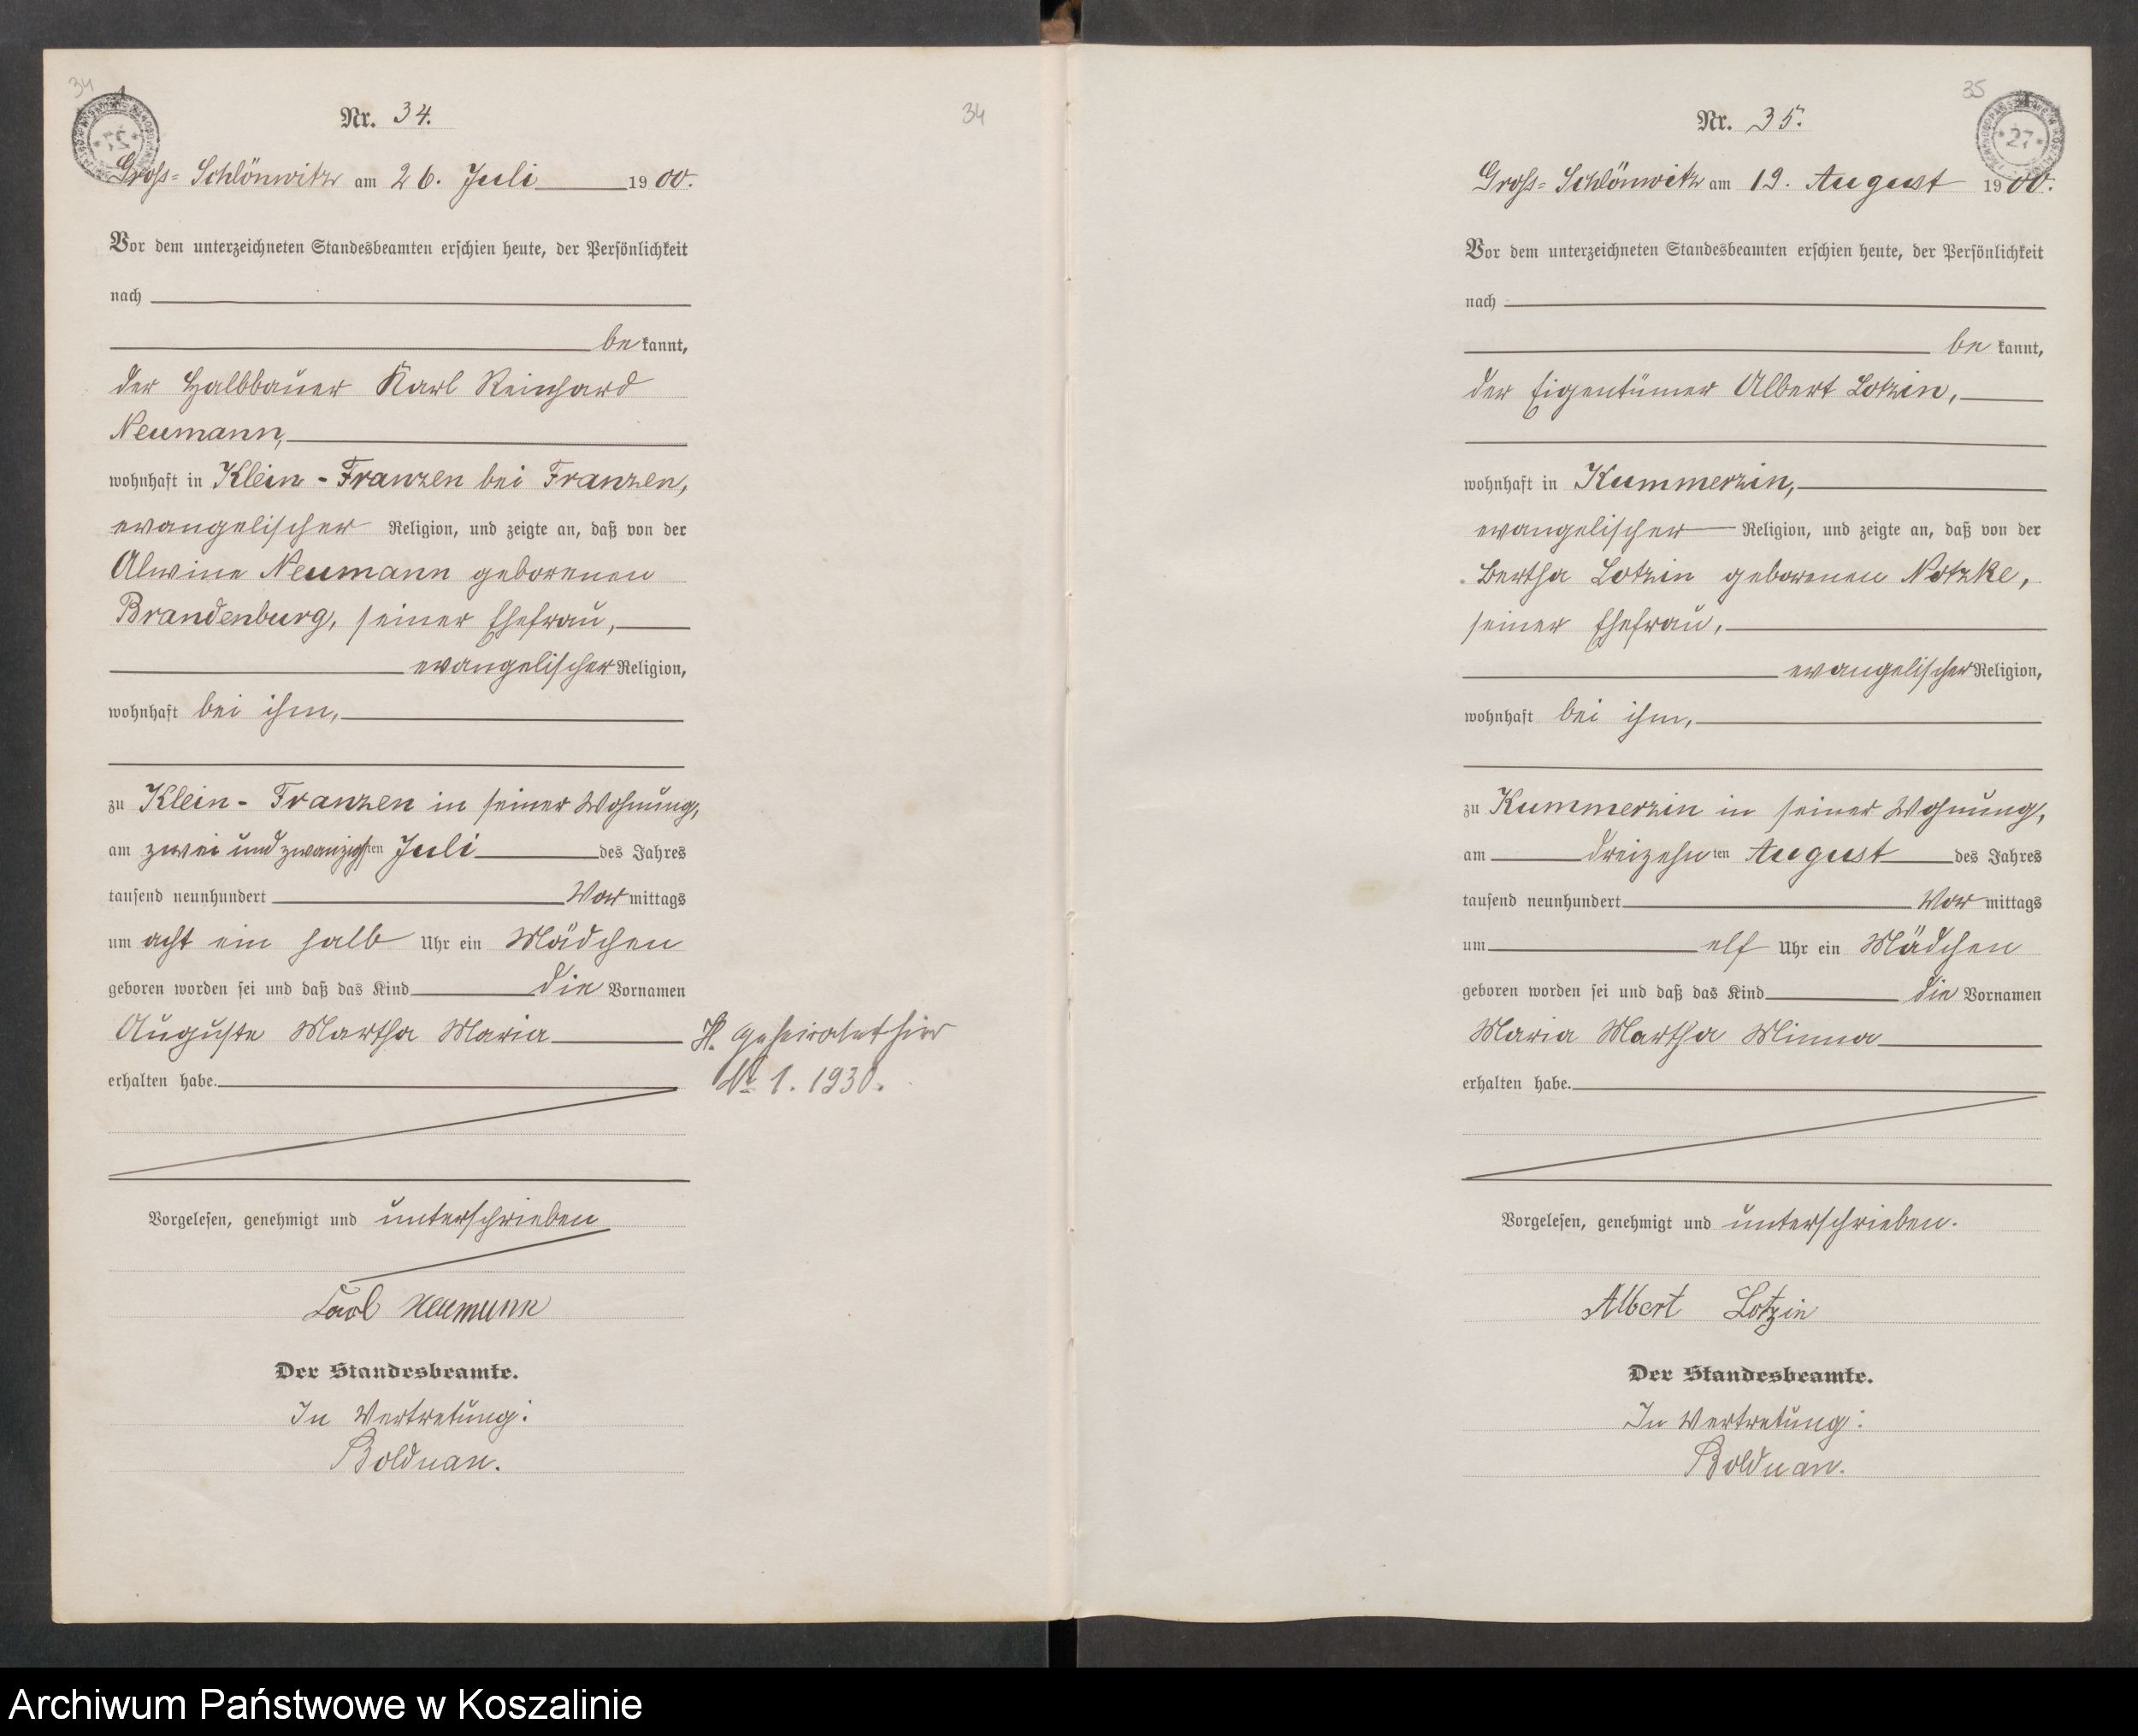 34
Nr. 34.
Groß-Schlönwitz am 26. Juli 1900.
Vor dem unterzeichneten Standesbeamten erschien heute, der Persönlichkeit
nach
be kannt,
der Halbbauer Karl Reinhard
Neumann,
wohnhaft in Klein-Franzen bei Franzen,
evangelischer Religion, und zeigte an, daß von der
Alwine Neumann geborenen
Brandenburg, seiner Ehefrau,
evangelischer Religion,
wohnhaft bei ihm,
zu Klein-Franzen in seiner Wohnung,
am zwei und zwanzigsten Juli des Jahres
tausend neunhundert Vor mittags
um acht ein halb Uhr ein Mädchen
geboren worden sei und daß das Kind die Vornamen
Auguste Martha Maria
erhalten habe.
Vorgelesen, genehmigt und unterschrieben
Karl Neumann
Der Standesbeamte.
In Vertretung:
Bolduan.
34
H. geheiratet hier
Nr 1. 1930.
35
27
Nr. 35.
Groß-Schlönwitz am 19. August 1900.
Vor dem unterzeichneten Standesbeamten erschien heute, der Persönlichkeit
nach
be kannt,
der Eigentümer Albert Lotzin,
wohnhaft in Kummerzin,
evangelischer Religion, und zeigte an, daß von der
Bertha Lotzin geborenen Notzke,
seiner Ehefrau,
evangelischer Religion,
wohnhaft bei ihm,
zu Kummerzin in seiner Wohnung,
am dreizehnten August des Jahres
tausend neunhundert Vor mittags
um elf Uhr ein Mädchen
geboren worden sei und daß das Kind die Vornamen
Maria Martha Minna
erhalten habe.
Vorgelesen, genehmigt und unterschrieben.
Albert Lotzin
Der Standesbeamte.
In Vertretung:
Bolduan.
Archiwum Państwowe w Koszalinie